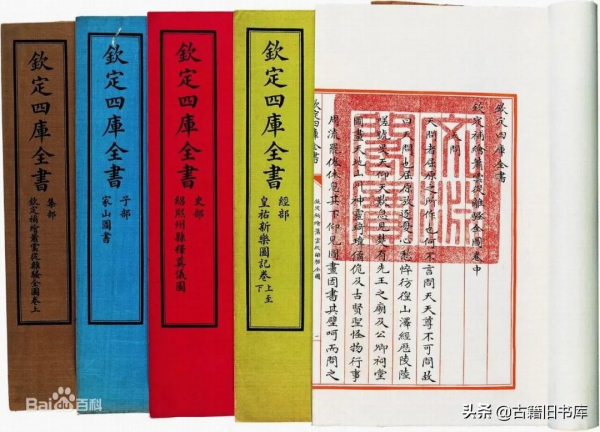 欽定四庫全書
集部
欽定補繪蕭雲從離騷全圖卷上
欽定四庫全書
子部
家山圖書
欽定四庫全書
史部
紹熙州縣釋奠儀圖
欽定四庫全書
經部
皇祐新樂圖記卷上至下
欽定四庫全書
欽定補繪蕭雲從離騷全圖卷中
天問
天問者屈原之所作也何不言問天天尊不可問故
曰天問也屈原放逐憂心愁悴彷徨山澤經歷陵陸
嗟號旻天仰天歎息見楚有先王之廟及公卿祠堂
圖畫天地山川神靈琦瑋僪佹及古賢聖怪物行事
周流罷倦休息其下仰見圖畫因書其壁呵而問之
欽定四庫全書
文淵閣寶
Baidu百科
头条 @古籍旧书库